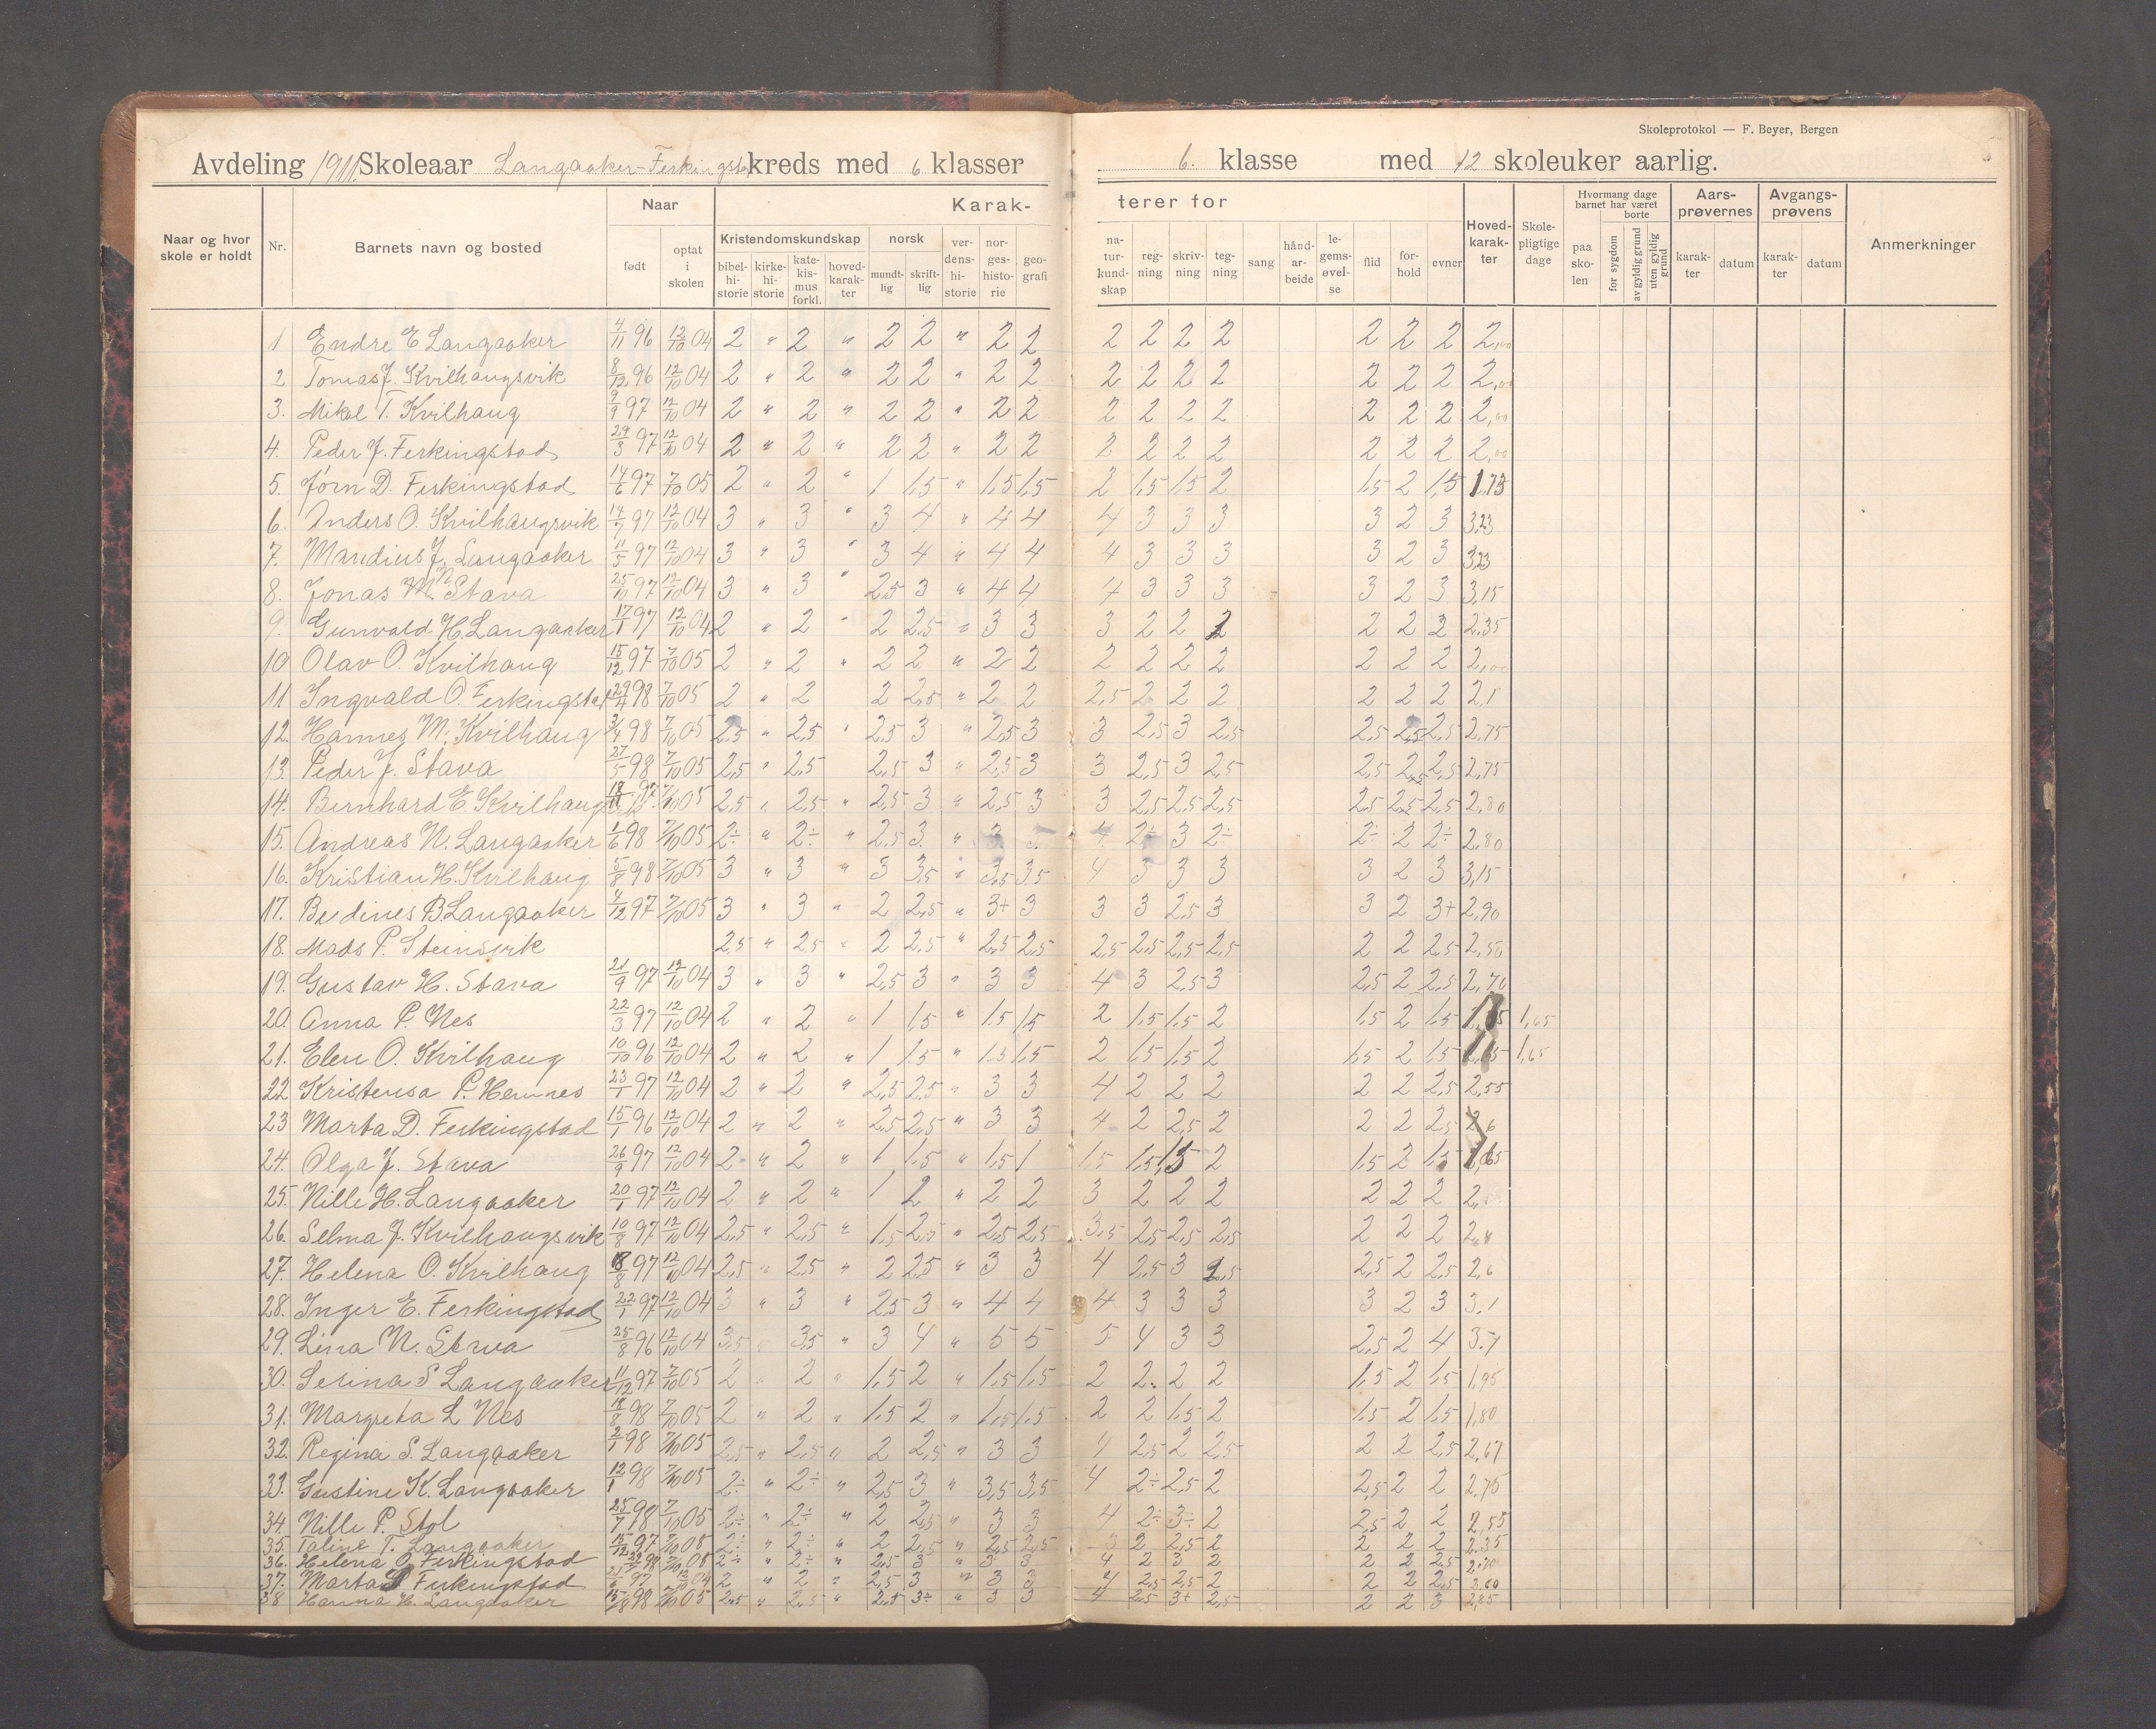 Skoleprotokol — F. Beyer, Bergen
Avdeling 1911. Skoleaar Langaaker-Ferkingstad kreds med 6 klasser 6. klasse med 12 skoleuker aarlig.
Naar og hvor skole er holdt Nr. Barnets navn og bosted Naar født optat i skolen Karakterer for
Kristendomskundskap bibelhistorie kirkehistorie katekismus forkl. hovedkarakter norsk mundtlig skriftlig verdenshistorie norgeshistorie geografi
naturkundskap regning skrivning tegning sang håndarbeide legemsøvelse flid forhold evner Hovedkarakter Skolepligtige dage
Hvormang dage barnet har været paa skolen borte for sygdom av gyldig grund uten gyldig grund Aarsprøvernes karakter datum Avgangsprøvens karakter datum Anmerkninger
1 Endre E Langaaker 4/11 96 12/10 04 2 " 2 " 2 2 " 2 2 2 2 2 2 2 2 2 2,00
2 Tomas J. Kvilhaugsvik 8/12 96 12/10 04 2 " 2 " 2 2 " 2 2 2 2 2 2 2 2 2 2,00
3. Mikal T. Kvilhaug 9/9 97 12/10 04 2 " 2 " 2 2 " 2 2 2 2 2 2 2 2 2 2,00
4. Peder J. Ferkingstad 29/3 97 12/10 04 2 " 2 " 2 2 " 2 2 2 2 2 2 2 2 2 2,00
5. Jørn D. Ferkingstad 14/6 97 7/10 05 2 " 2 " 1 1,5 " 1,5 1,5 2 1,5 1,5 2 1,5 2 1,5 1,75
6. Anders O. Kvilhaugsvik 14/7 97 12/10 04 3 " 3 " 3 4 " 4 4 4 3 3 3 3 2 3 3,23
7. Mandius J. Langaaker 11/5 97 12/10 04 3 " 3 " 3 4 " 4 4 4 3 3 3 3 2 3 3,23
8. Jonas M. Stava 25/10 97 12/10 04 3 " 3 " 2,5 3 " 4 4 4 3 3 3 3 2 3 3,15
9. Gunvald H. Langaaker 17/1 97 12/10 04 2 " 2 " 2 2,5 " 3 3 3 2 2 2 2 2 2 2,35
10 Olav O. Kvilhaug 15/12 97 7/10 05 2 " 2 " 2 2 " 2 2 2 2 2 2 2 2 2 2,00
11 Ingvald O. Ferkingstad 29/4 98 7/10 05 2 " 2 2 2,5 " 2 2 2,5 2 2 2 2 2 2 2,1
12. Hannes M. Kvilhaug 3/4 98 7/10 05 2,5 " 2,5 " 2,5 3 " 2,5 3 3 2,5 3 2,5 2,5 2,5 2,5 2,75
13. Peder J. Stava 27/5 98 7/10 05 2,5 " 2,5 2,5 3 " 2,5 3 3 2,5 3 2,5 2,5 2,5 2,5 2,75
14. Bernhard E Kvilhaug 7/10 05 2,5 " 2,5 " 2,5 3 " 2,5 3 3 2,5 2,5 2,5 2,5 2,5 2,5 2,80
15. Andreas N. Langaaker 1/6 98 7/10 05 2÷ " 2÷ " 2,5 3 " 3 3 4 2÷ 3 2÷ 2÷ 2 2÷ 2,80
16. Kristian H. Kvilhaug 5/8 98 7/10 05 3 " 3 " 3 3,5 " 3,5 3,5 4 3 3 3 3 2 3 3,15
17. Berdines B Langaaker 4/12 97 7/10 05 3 " 3 " 2 2,5 " 3+ 3 3 3 2,5 3 3 2 3+ 2,90
18. Mads P. Steinsvik 2,5 " 2,5 " 2 2,5 " 2,5 2,5 2,5 2,5 2,5 2,5 2 2 2,5 2,50
19. Gustav H. Stava 21/9 97 12/10 04 3 " 3 " 2,5 3 " 3 3 4 3 2,5 3 2,5 2 2,5 2,70
20. Anna P. Nes 22/3 97 12/10 04 2 " 2 " 1 1,5 " 1,5 1,5 2 1,5 1,5 2 1,5 2 1,5 1,65 1,65
21. Elen O. Kvilhaug 10/10 96 12/10 04 2 " 2 " 1 1,5 " 1,5 1,5 2 1,5 1,5 2 1,5 2 1,5 1,65 1,65
22 Kristensa P. Hemnes 23/1 97 12/10 04 2 " 2 " 2,5 2,5 " 3 3 4 2 2 2 2 2 2,5 2,55
23 Marta D. Ferkingstad 15/1 96 12/10 04 2 " 2 " 2,5 2,5 " 3 3 4 2 2,5 2 2 2 2,5 2,6
24. Olga J. Stava 26/9 97 12/10 04 2 " 2 " 1 1,5 " 1,5 1 1,5 1,5 1,5 2 1,5 2 1,5 1,65
25. Nille H. Langaaker 20/1 97 12/10 04 2 " 2 " 1 2 " 2 2 3 2 2 2 2 2 2 2,
26. Selma J. Kvilhaugsvik 10/8 97 12/10 04 2,5 " 2,5 " 1,5 2,5 " 2,5 2,5 3,5 2,5 2,5 2,5 2 2 2 2,4
27. Helena O. Kvilhaug 18/8 97 12/10 04 2,5 " 2,5 " 2 2,5 " 3 3 4 2,5 3 2,5 2,5 2 2,5 2,6
28. Inger E. Ferkingstad 22/1 97 12/10 04 3 " 3 " 2,5 3 " 4 4 4 3 3 3 3 2 3 3,1
29. Lina N. Stava 25/8 96 12/10 04 3,5 " 3,5 " 3 4 " 5 5 5 4 3 3 2,5 2 4 3,7
30. Serina S Langaaker 11/12 97 7/10 05 2 " 2 " 1,5 2 " 1,5 1,5 2 2 2 2 1,5 2 1,5 1,95
31. Margreta L Nes 18/8 98 7/10 05 2 " 2 " 1,5 2 " 1,5 1,5 2 2 1,5 2 1,5 2 1,5 1,80
32. Regina S. Langaaker 2/1 98 7/10 05 2,5 " 2,5 " 2 2,5 " 3 3 4 2,5 2 2,5 2 2 2,5 2,67
33. Gustine K. Langaaker 12/1 98 7/10 05 2÷ " 2÷ " 2,5 3 " 3,5 3,5 4 2÷ 2,5 2 2,5 2 2 2,75
34. Nille P. Stol 25/7 98 7/10 05 2÷ " 2÷ " 2 2,5 " 3 3 4 2÷ 3÷ 2 2,5 2 2 2,55
35. Taline T. Langaaker 15/12 97 7/10 08 2÷ " 2÷ " 2 2,5 " 2,5 2,5 3 2 2,5 2 2 2 2 2,35
36. Helena O. Ferkingstad 98 7/10 08 2÷ " 2÷ " 2,5 3 " 3 3 4 2 3 2 2 2 2,5 2,70
37. Marta Ferkingstad 97 12/10 04 2 " 2 " 2,5 3 " 3 3 4 2,5 2,5 2 2 2 2,5 2,60
38 Hanna H. Langaaker 98 7/10 05 2,5 " 2,5 " 2,5 3÷ " 3 3 4 2,5 3+ 2,5 2 2 3 2,85